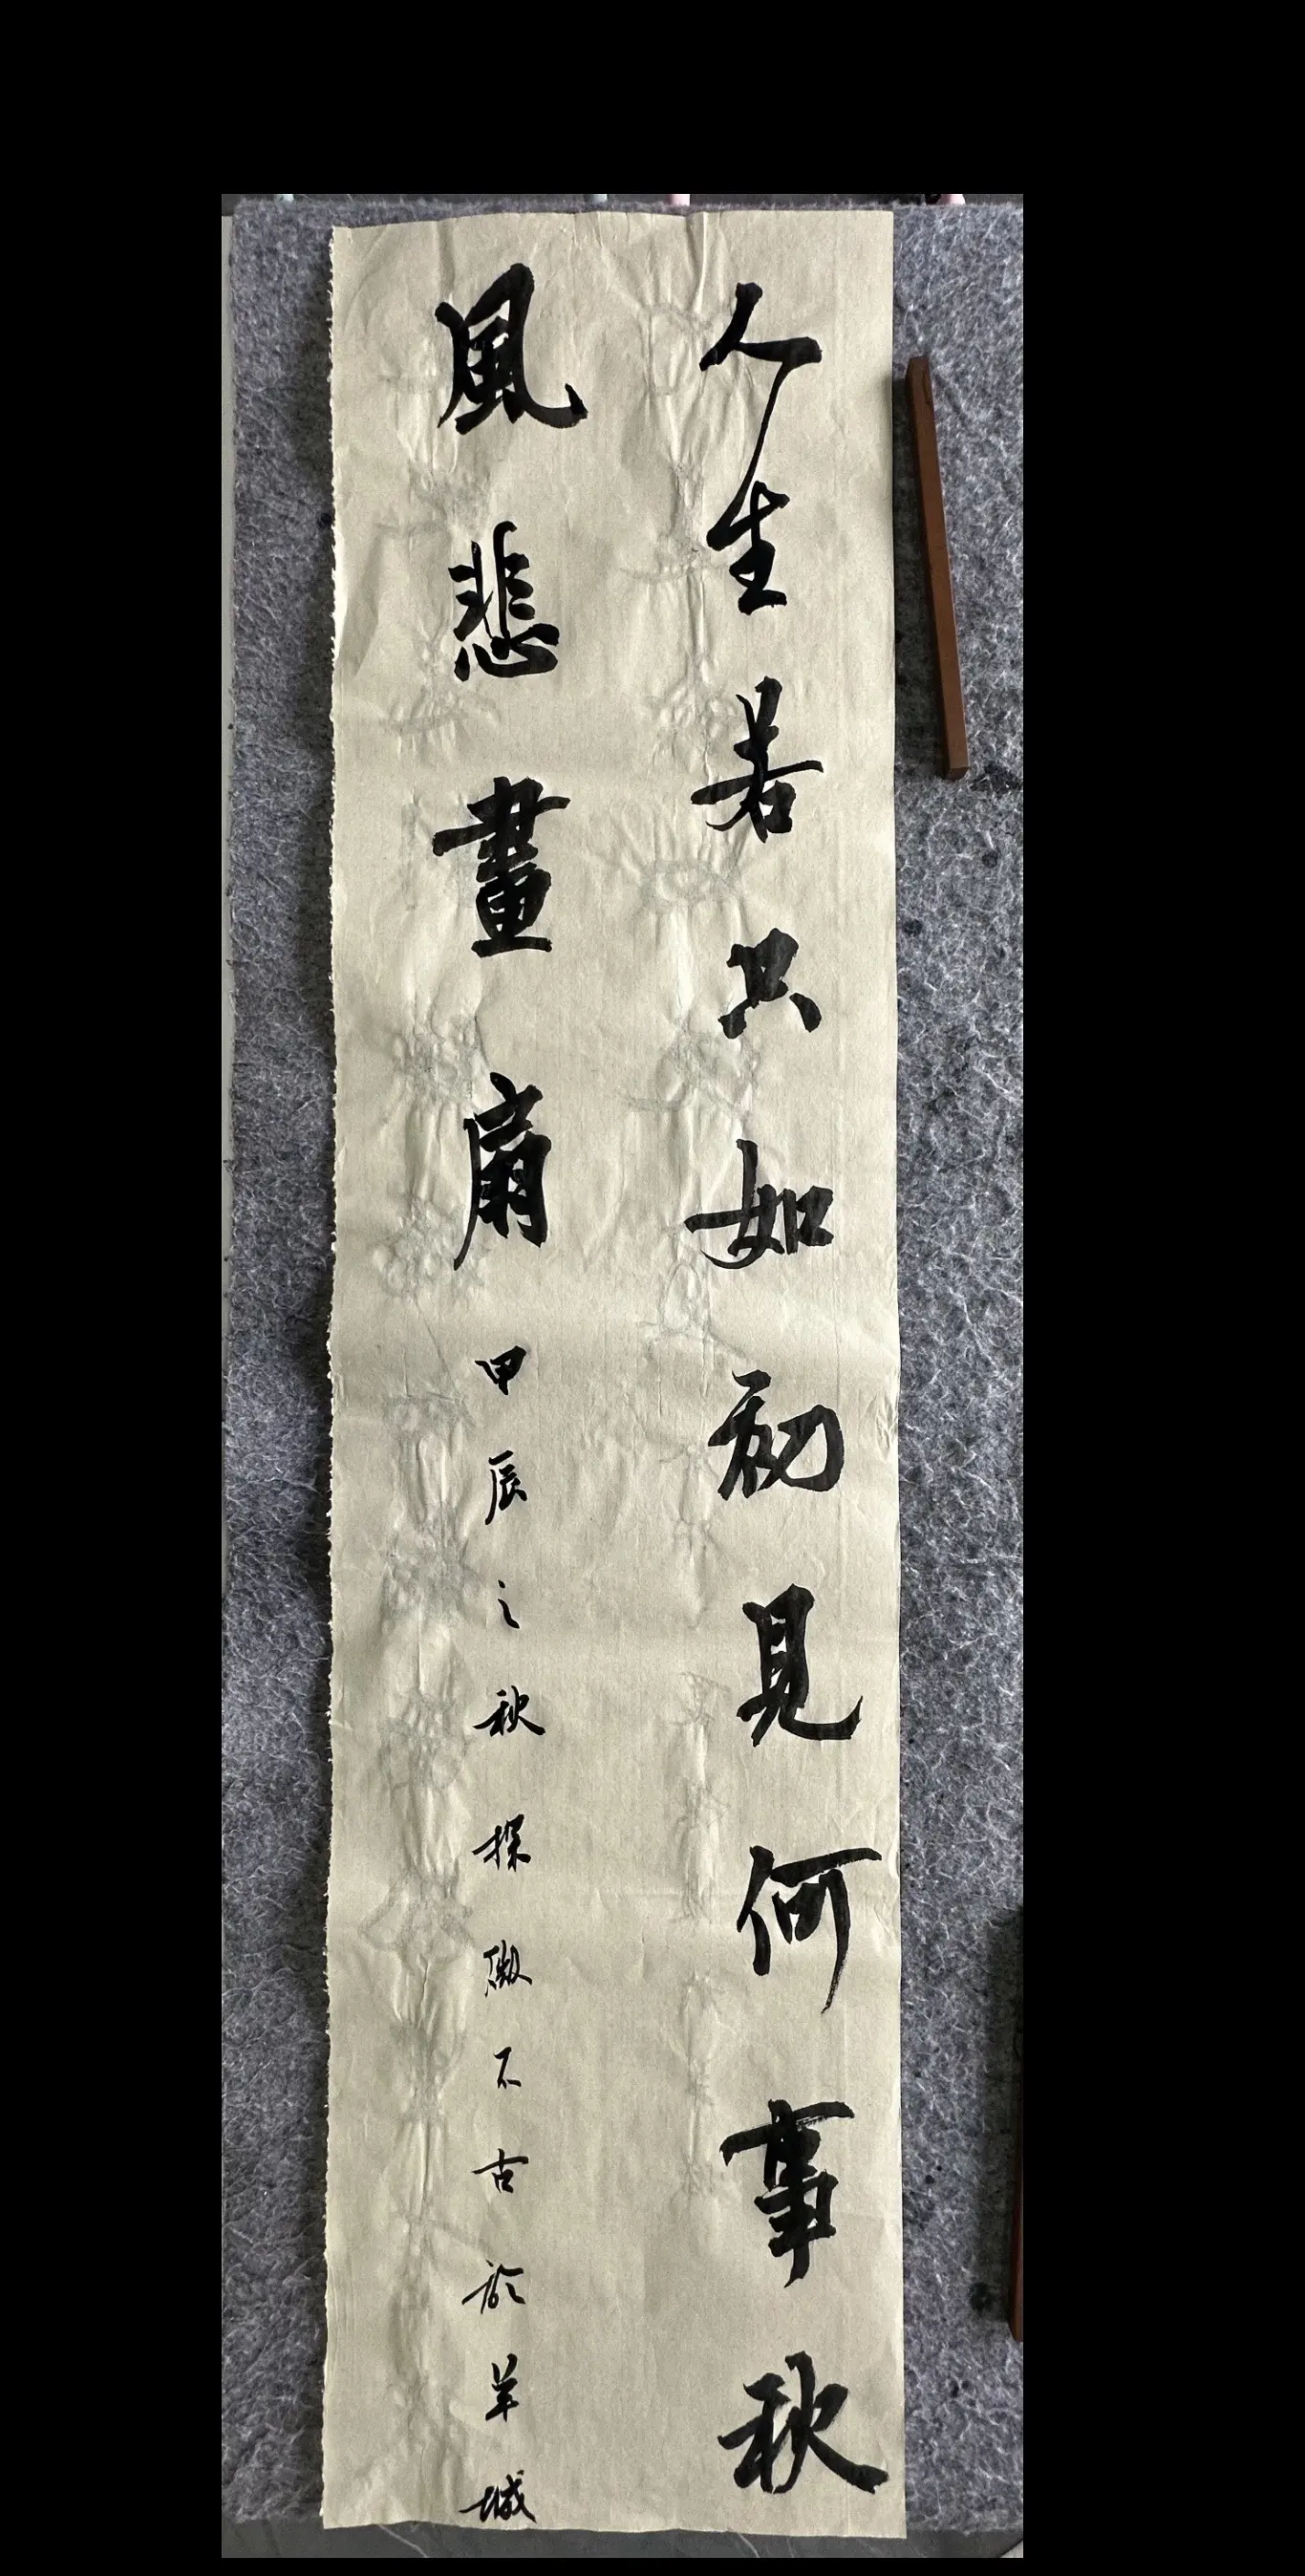 人生若只如初見何事秋
風悲畫扇
甲辰之秋探微不古於羊城